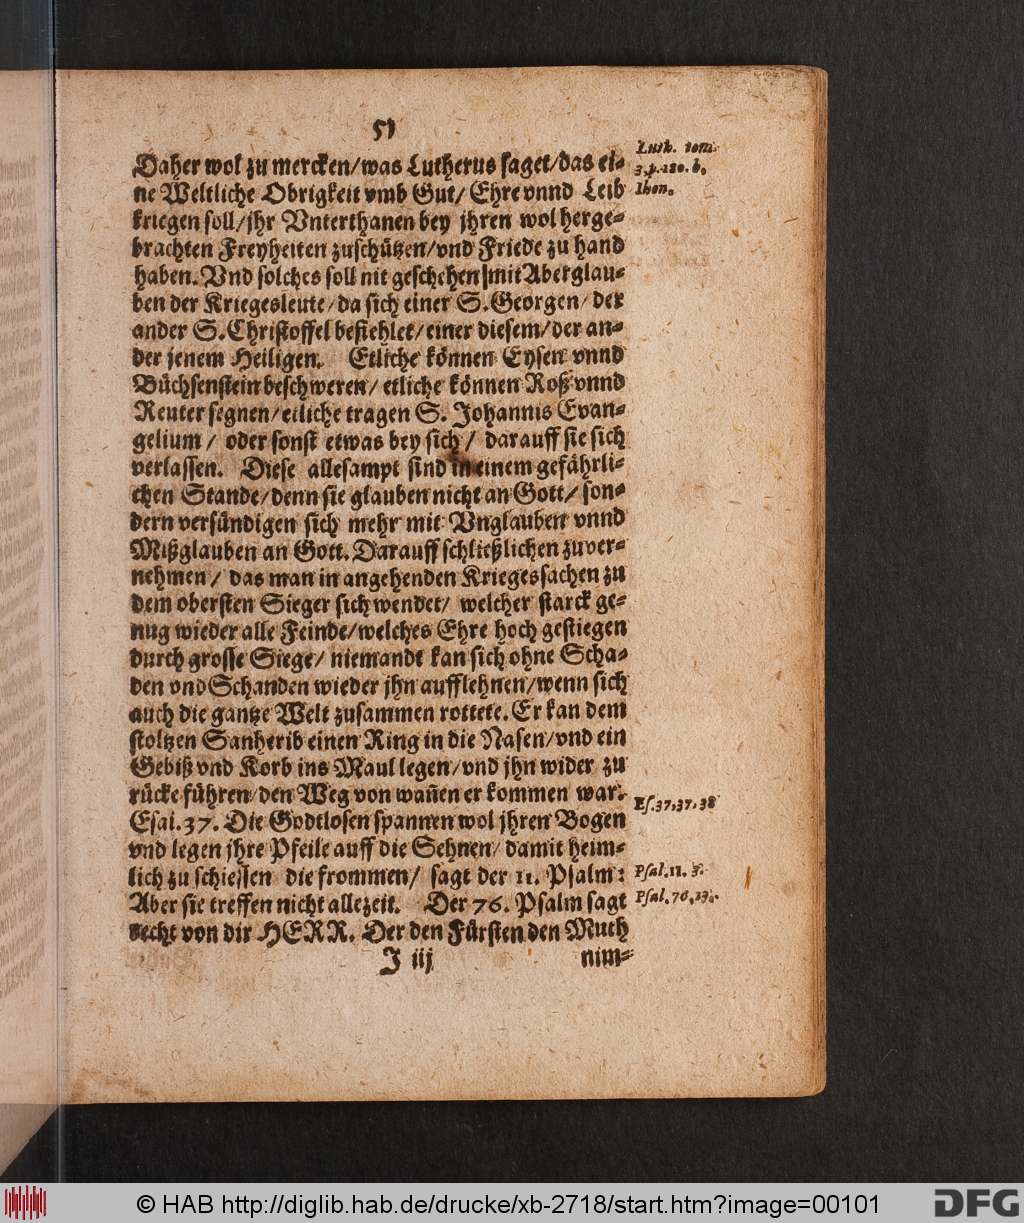 51
Daher wol zu mercken/was Lutherus saget/das ei-
ne Weltliche Obrigkeit vmb Gut/ Ehre vnnd Leib
kriegen soll/jhr Vnterthanen bey jhren wol herge-
brachten Freyheiten zuschützen/vnd Friede zu hand
haben. Vnd solches soll nit geschehen mit Aberglau-
ben der Kriegesleute/da sich einer S. Georgen/ der
ander S. Christoffel befiehlet/einer diesem/der an-
der jenem Heiligen. Etliche können Eysen vnnd
Büchsenstein beschweren/ etliche können Roß vnnd
Reuter segnen/etliche tragen S. Johannis Evan-
gelium/ oder sonst etwas bey sich/ darauff sie sich
verlassen. Diese allesampt sind in einem gefährli-
chen Stande/denn sie glauben nicht an Gott/ son-
dern versündigen sich mehr mit Vnglauben vnnd
Mißglauben an Gott. Darauff schließlichen zuver-
nehmen/ das man in angehenden Kriegessachen zu
dem obersten Sieger sich wendet/ welcher starck ge-
nug wieder alle Feinde/welches Ehre hoch gestiegen
durch grosse Siege/ niemandt kan sich ohne Scha-
den vnd Schanden wieder jhn aufflehnen/wenn sich
auch die gantze Welt zusammen rottete. Er kan dem
stoltzen Sanherib einen Ring in die Nasen/vnd ein
Gebiß vnd Korb ins Maul legen/vnd jhn wider zu
rücke führen/den Weg von wañen er kommen war.
Esai.37. Die Godtlosen spannen wol jhren Bogen
vnd legen jhre Pfeile auff die Sehnen/ damit heim-
lich zu schiessen die frommen/ sagt der 11. Psalm:
Aber sie treffen nicht allezeit. Der 76. Psalm sagt
recht von dir HERR. Der den Fürsten den Muth
J iij
nim-
Luth. tom.
3.p.180.b.
Ihen.
Es.37,37,38
Psal.11. 3.
Psal.76,13.
© HAB http://diglib.hab.de/drucke/xb-2718/start.htm?image=00101
DFG